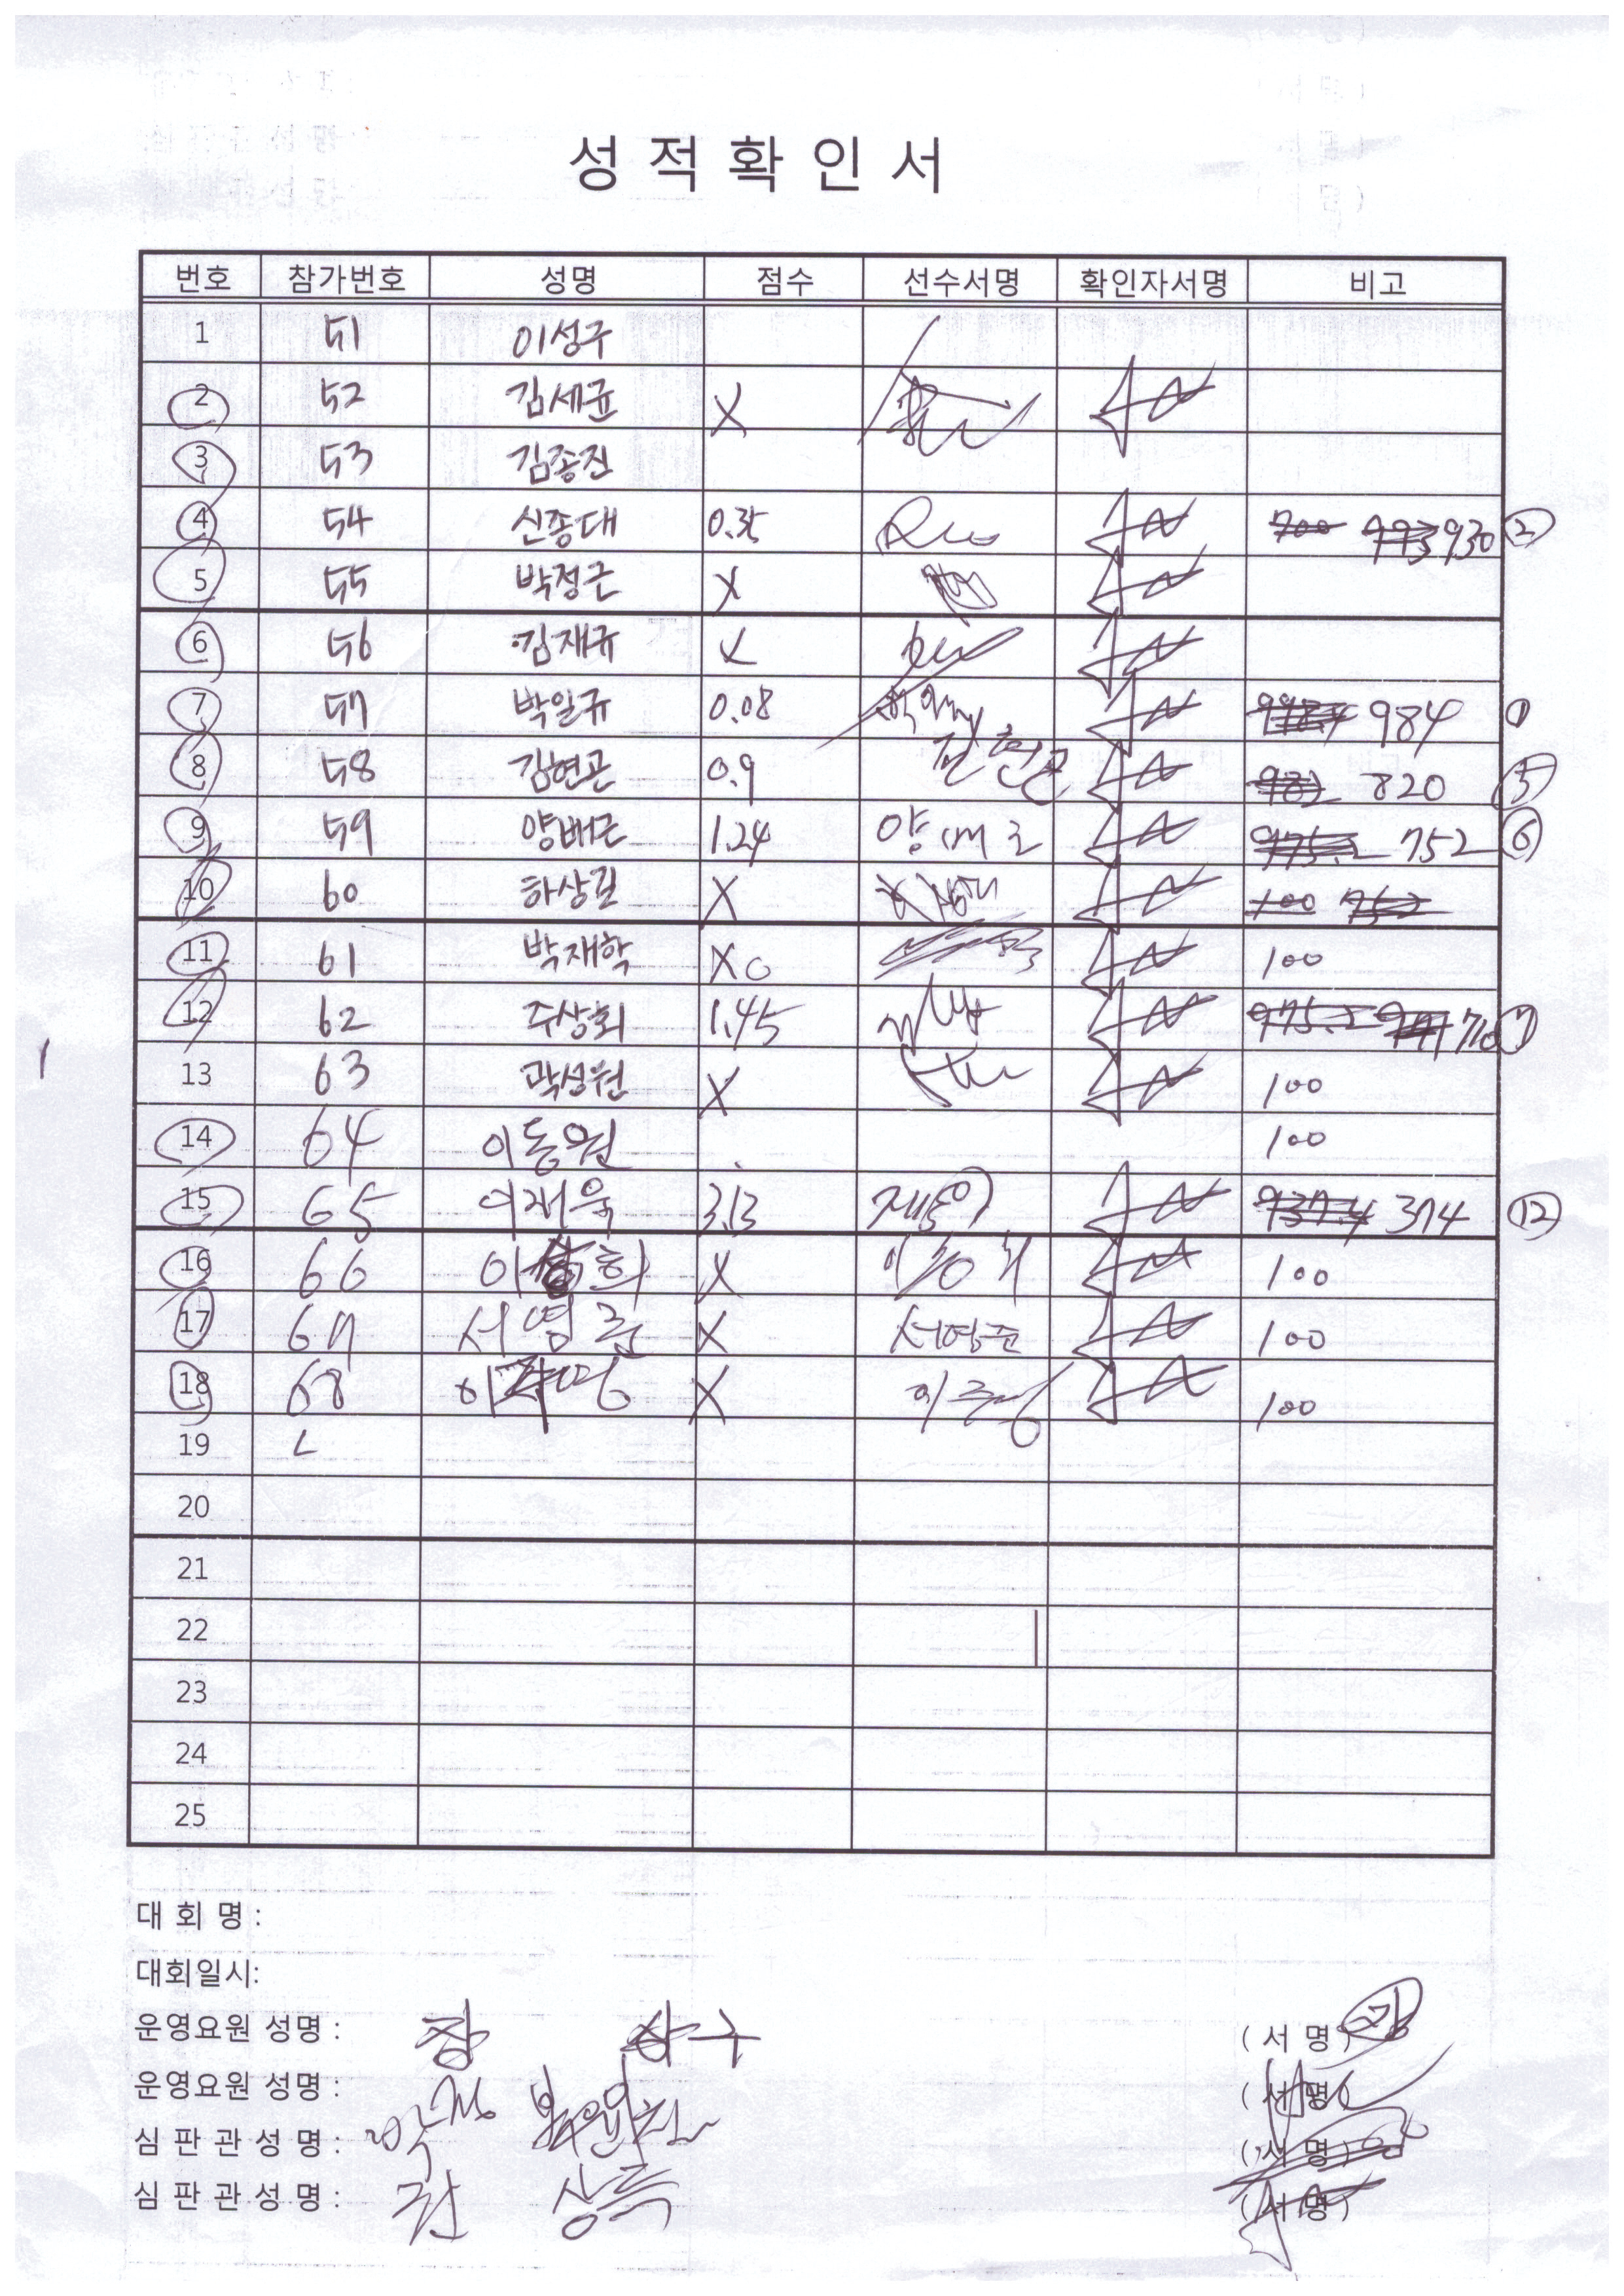 성적확인서
번호 참가번호 성명 점수 선수서명 확인자서명 비고
1 51 이성구
2 52 김세균 X
3 53 김종진
4 54 신종대 0.35 700 993 930 ②
5 55 박정근 X
6 56 김재규 X
7 57 박일규 0.08 984 ①
8 58 김현곤 0.9 김현곤 982 820 ⑤
9 59 양배근 1.24 양배근 975.2 752 ⑥
10 60 하상길 X 100 752
11 61 박재학 X 0 100
12 62 주상회 1.45 975.2 710 ⑦
13 63 곽성원 X 100
14 64 이동원 100
15 65 이재욱 3.13 937.4 374 ⑫
16 66 X 100
17 67 서영준 X 서영준 100
18 68 X 100
19
20
21
22
23
24
25
대 회 명 :
대회일시:
운영요원 성명 : (서 명)
운영요원 성명 : (서 명)
심 판 관 성 명 : (서 명)
심 판 관 성 명 : 권 상득 (서 명)